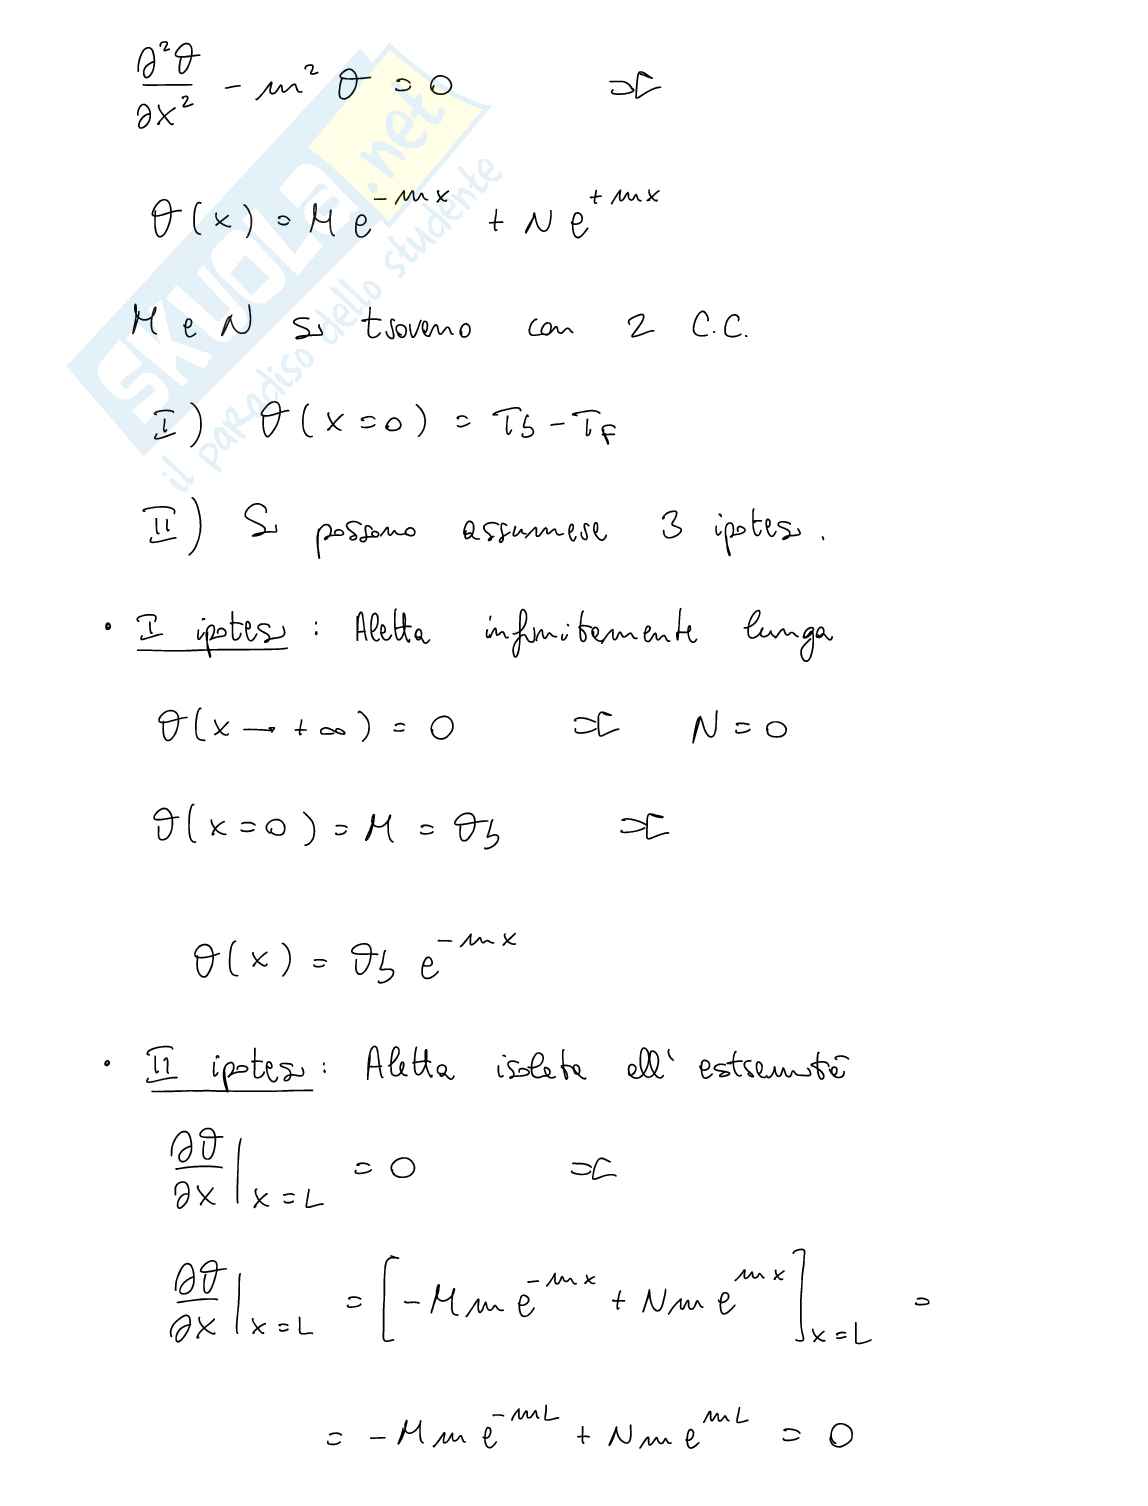 ∂²θ/∂x² - m² θ = 0 =>
θ(x) = M e^{-mx} + N e^{+mx}
M e N si trovano con 2 C.C.
I) θ(x=0) = Tb - TF
II) Si possono assumere 3 ipotesi.
• I ipotesi : Aletta infinitamente lunga
θ(x → +∞) = 0 => N = 0
θ(x=0) = M = θb =>
θ(x) = θb e^{-mx}
• II ipotesi : Aletta isolata all' estremità
∂θ/∂x |x=L = 0 =>
∂θ/∂x |x=L = [-M m e^{-mx} + N m e^{mx}]x=L =
= -M m e^{-mL} + N m e^{mL} = 0
SKUOLA.net
il paradiso dello studente